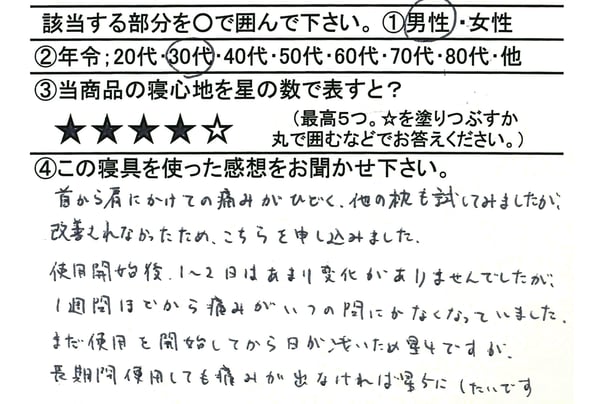 該当する部分を〇で囲んで下さい。①男性・女性
②年令;20代・30代・40代・50代・60代・70代・80代・他
③当商品の寝心地を星の数で表すと?
★★★★☆ (最高5つ。☆を塗りつぶすか
丸で囲むなどでお答えください。)
④この寝具を使った感想をお聞かせ下さい。
首から肩にかけての痛みがひどく、他の枕も試してみましたが、
改善されなかったため、こちらを申し込みました。
使用開始後、1〜2日はあまり変化がありませんでしたが、
1週間ほどから痛みがいつの間にかなくなっていました。
まだ使用を開始してから日が浅いため星4ですが、
長期間使用しても痛みが出なければ星5にしたいです